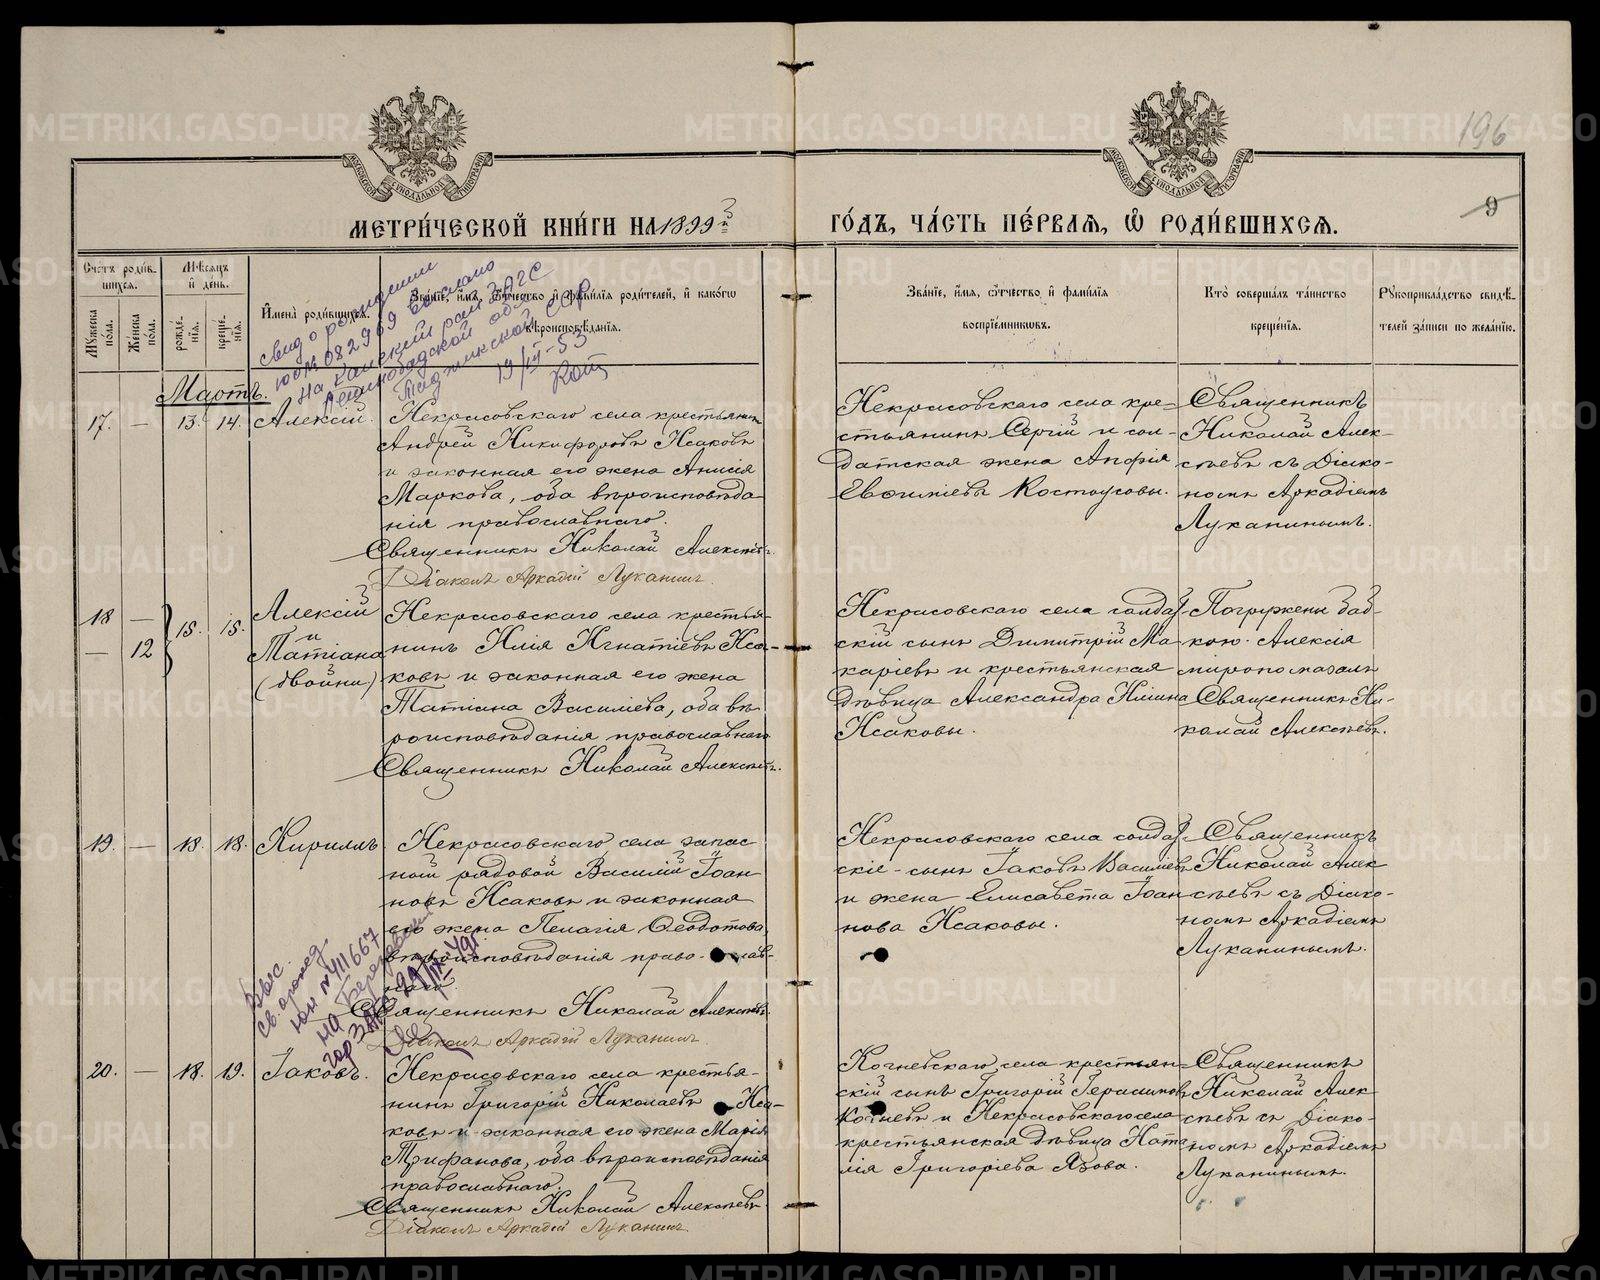 196
9
МЕТРИ́ЧЕСКОЙ КНИ́ГИ НА 1899й
ГО́ДЪ, ЧА́СТЬ ПЕ́РВАѦ, Ѡ҆ РОДИ́ВШИХСѦ.
Сче́тъ роди́в-
шихся.
Мѣ́сяцъ
и҆ де́нь.
Мꙋ́жеска
по́ла.
Же́нска
по́ла.
рожде-
нїя.
креще-
нїя.
И҆мена̀ роди́вшихся.
Зва́нїе, и҆́мя, ѻ҆́тчество и҆ фами́лїя роди́телей, и҆ како́гѡ
вѣроисповѣ́данїя.
Зва́нїе, и҆́мя, ѻ҆́тчество и҆ фами́лїя
воспрїе́мниковъ.
Кто̀ соверша́лъ та́инство
креще́нїя.
Рꙋкоприкла́дство свидѣ́-
телей за́писи по жела́нїю.
свид о рождении
082969 выслано
на район ЗАГС
обл
Таджикской ССР
19/III-53
Мартъ.
17. — 13. 14. Алексій.
Некрасовскаго села крестьянинъ
Андрей Никифоровъ Исаковъ
и законная его жена Анисія
Маркова, оба вѣроисповѣда-
нія православнаго.
Священникъ Николай Алексѣевъ.
Діаконъ Аркадій Луканинъ.
Некрасовскаго села кре-
стьянинъ Сергій и сол-
датская жена Анфія
Евѳиміевы Костоусовы.
Священникъ
Николай Алек-
сѣевъ съ Діако-
номъ Аркадіемъ
Луканинымъ.
18 —
— 12
15. 15.
Алексій
и
Татіана
(двойни)
Некрасовскаго села крестья-
нинъ Илія Игнатіевъ Иса-
ковъ и законная его жена
Татіана Василіева, оба вѣ-
роисповѣданія православнаго
Священникъ Николай Алексѣевъ.
Некрасовскаго села солдат-
скій сынъ Димитрій Ма-
каріевъ и крестьянская
дѣвица Александра Иліина
Исаковы.
Погружены баб-
кою. Алексія
миропомазалъ
Священникъ Ни-
колай Алексѣевъ.
19. — 18. 18. Кириллъ
Некрасовскаго села запас-
ной рядовой Василій Іоан-
новъ Исаковъ и законная
его жена Пелагія Ѳеодотова,
вѣроисповѣданія православ-
наго.
Священникъ Николай Алексѣевъ.
Діаконъ Аркадій Луканинъ.
Некрасовскаго села солдат-
скіе - сынъ Іаковъ Василіевъ
и жена Елисавета Іоан-
нова Исаковы.
Священникъ
Николай Алек-
сѣевъ съ Діако-
номъ Аркадіемъ
Луканинымъ.
Выс.
св. о рожд
ЮН № 411667
на Березовский
гор ЗАГС 29/IX-49г
20. — 18. 19. Іаковъ.
Некрасовскаго села крестья-
нинъ Григорій Николаевъ Иса-
ковъ и законная его жена Марія
Трифанова, оба вѣроисповѣданія
православнаго.
Священникъ Николай Алексѣевъ
Діаконъ Аркадій Луканинъ.
Кочневскаго села крестьян-
скій сынъ Григорій Герасимовъ
Кочневъ и Некрасовскаго села
крестьянская дѣвица Ната-
лія Григоріева Язова.
Священникъ
Николай Алек-
сѣевъ съ Діако-
номъ Аркадіемъ
Луканинымъ.
METRIKI.GASO-URAL.RU